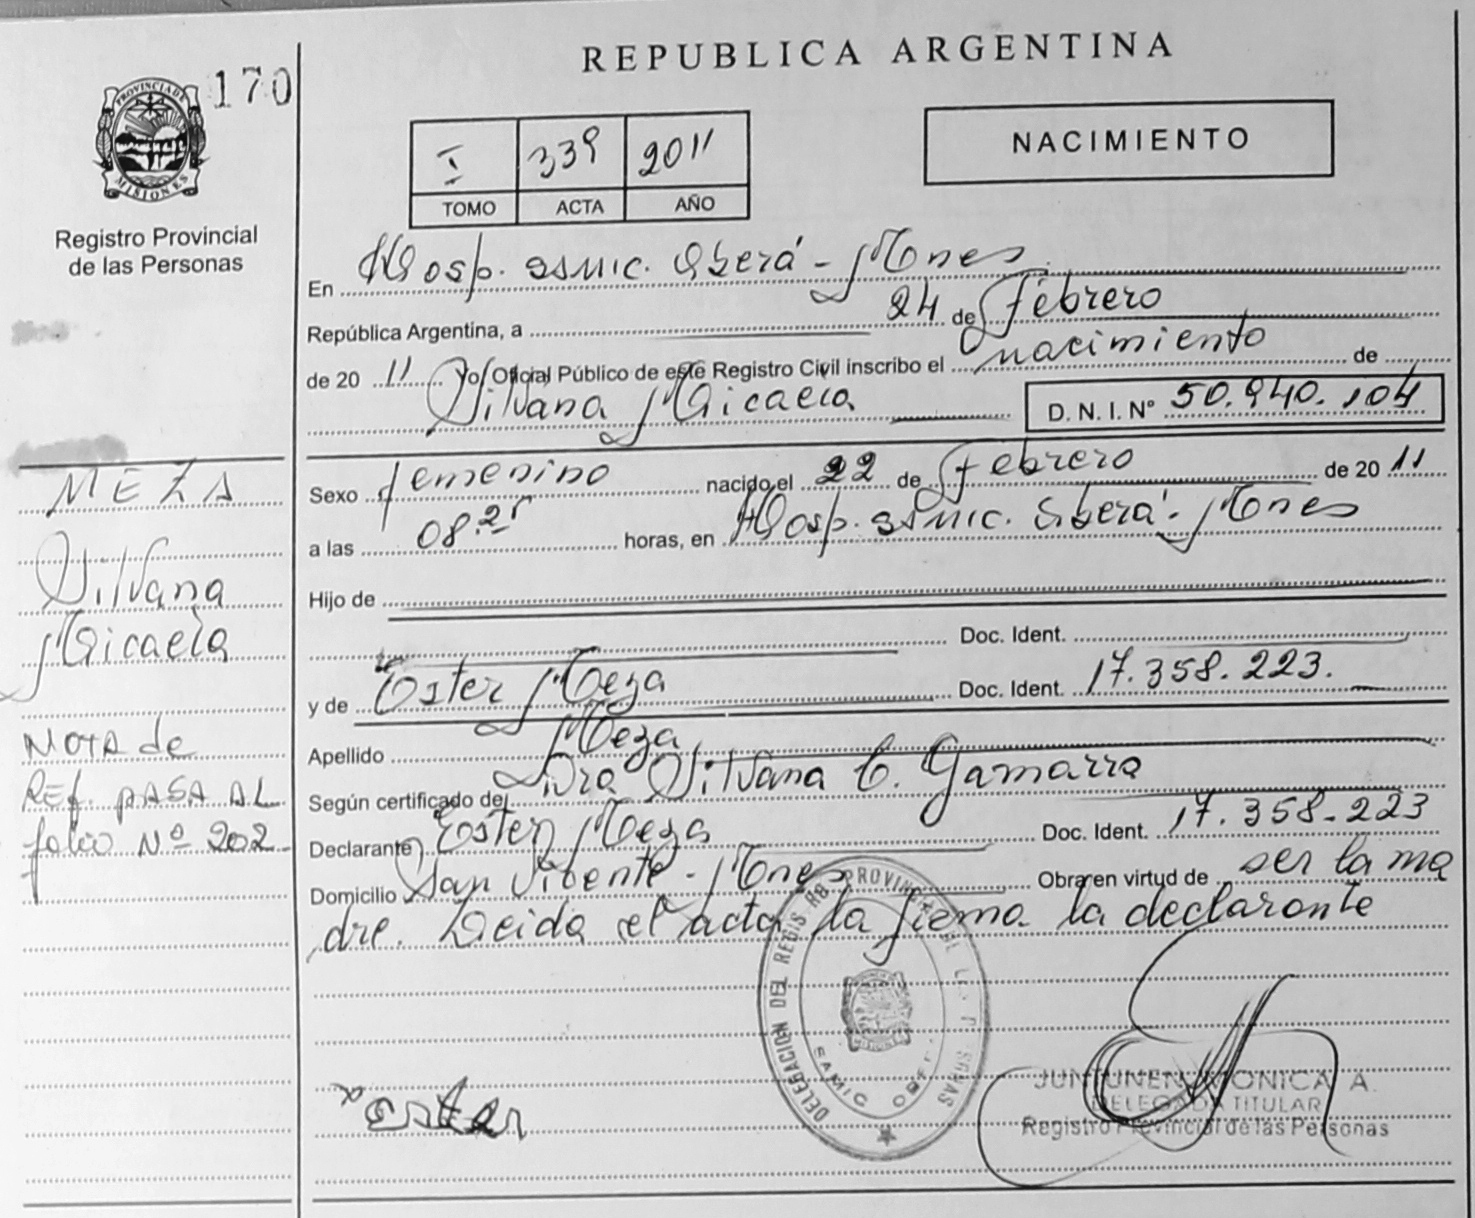 REPUBLICA ARGENTINA
170
PROVINCIA DE
MISIONES
Registro Provincial
de las Personas
I 339 2011
TOMO ACTA AÑO
NACIMIENTO
En Hosp. Samic. Oberá - Mnes
República Argentina, a 24 de Febrero
de 20 11 Yo Oficial Público de este Registro Civil inscribo el nacimiento de
Silvana Micaela D. N. I. N° 50.940.104
Sexo femenino nacido el 22 de Febrero de 20 11
a las 08.25 horas, en Hosp. Samic. Oberá - Mnes
Hijo de
Doc. Ident.
y de Ester Meza Doc. Ident. 17.358.223.
Apellido Meza
Según certificado de Dra Silvana C. Gamarra
Declarante Ester Meza Doc. Ident. 17.358.223
Domicilio San Vicente - Mnes Obra en virtud de ser la ma
dre. Leida el acta la firma la declarante
MEZA
Silvana
Micaela
NOTA de
REf. PASA AL
folio Nº 202
DELEGACION DEL REGISTRO PROVINCIAL DE L
SAMIC OBE
MISIONES
Ester
JUNTUNEN MONICA A.
DELEGADA TITULAR
Registro Provincial de las Personas